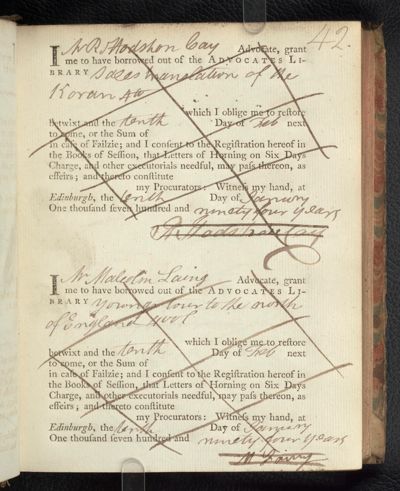 42.
I Mr R Hodshon Cay Advocate, grant
me to have borrowed out of the ADVOCATES LI-
BRARY Sales translation of the
Koran 4to
which I oblige me to restore
betwixt and the tenth Day of Feb next
to come, or the Sum of
in case of Failzie; and I consent to the Registration hereof in
the Books of Session, that Letters of Horning on Six Days
Charge, and other executorials needful, may pass thereon, as
effeirs; and thereto constitute
my Procurators: Witness my hand, at
Edinburgh, the tenth Day of January
One thousand seven hundred and ninety four years
R Hodshon Cay
I Mr Malcolm Laing Advocate, grant
me to have borrowed out of the ADVOCATES LI-
BRARY Youngs tour to the north
of England
which I oblige me to restore
betwixt and the tenth Day of Feb next
to come, or the Sum of
in case of Failzie; and I consent to the Registration hereof in
the Books of Session, that Letters of Horning on Six Days
Charge, and other executorials needful, may pass thereon, as
effeirs; and thereto constitute
my Procurators: Witness my hand, at
Edinburgh, the tenth Day of January
One thousand seven hundred and ninety four years
M Laing